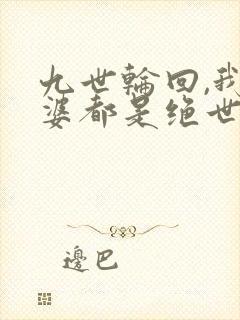 九世輪回,我
婆都是绝世
邊巴